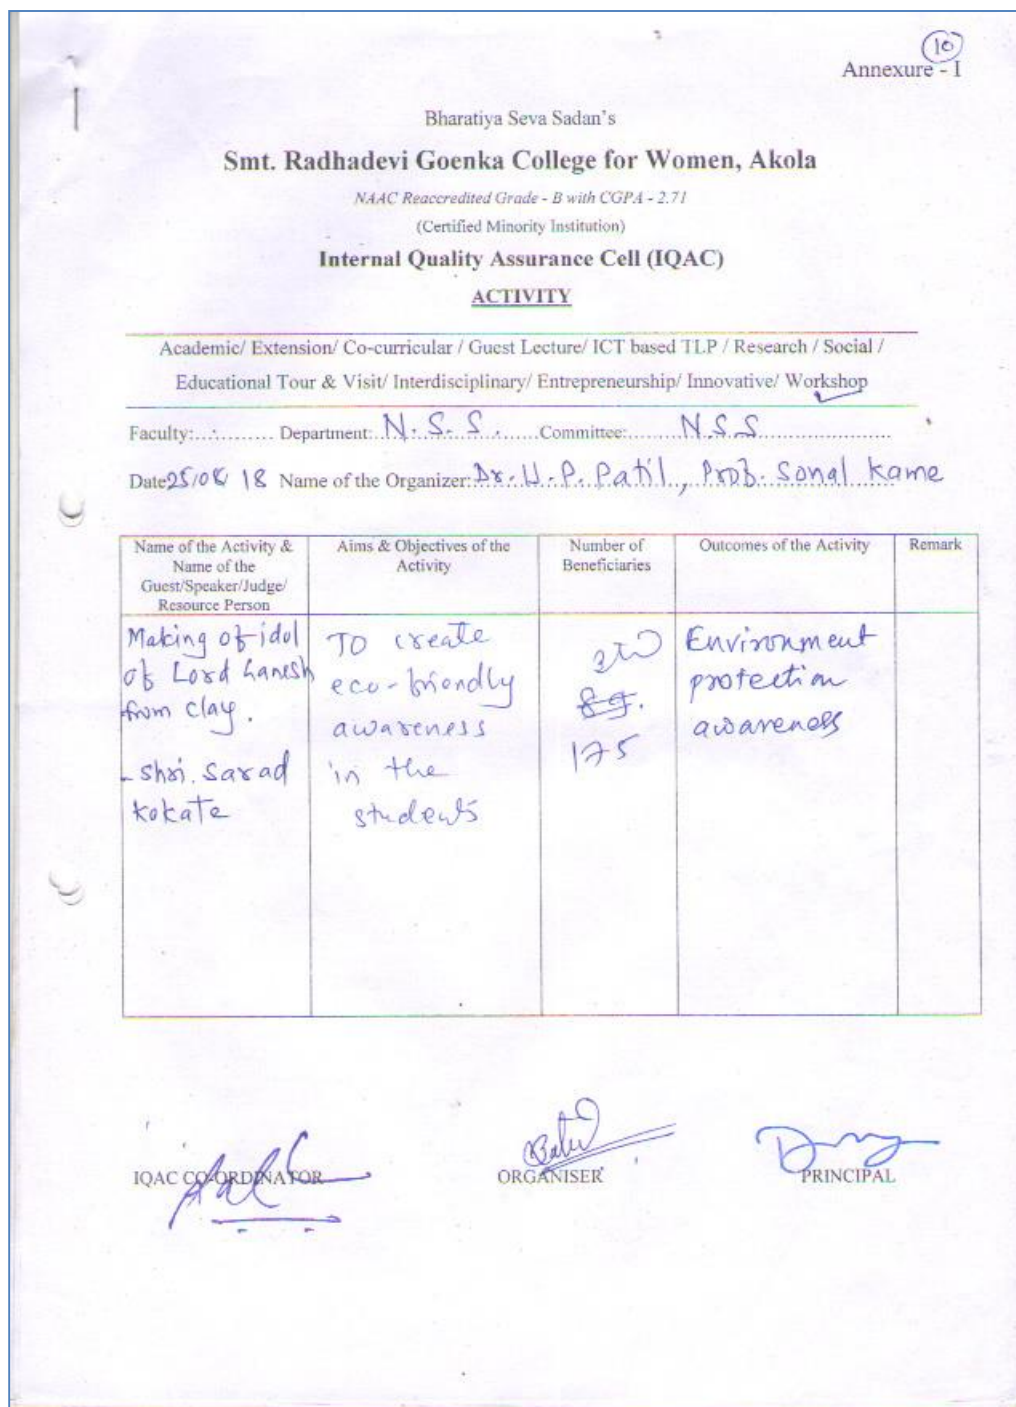 10
Annexure - I
Bharatiya Seva Sadan's
Smt. Radhadevi Goenka College for Women, Akola
NAAC Reaccredited Grade - B with CGPA - 2.71
(Certified Minority Institution)
Internal Quality Assurance Cell (IQAC)
ACTIVITY
Academic/ Extension/ Co-curricular / Guest Lecture/ ICT based TLP / Research / Social /
Educational Tour & Visit/ Interdisciplinary/ Entrepreneurship/ Innovative/ Workshop
Faculty:............ Department: N. S. S. ......Committee:....... N.S.S......................
Date 25/08/18 Name of the Organizer: Dr. U. P. Patil, Prof. Sonal Kame
Name of the Activity &
Name of the
Guest/Speaker/Judge/
Resource Person
Aims & Objectives of the
Activity
Number of
Beneficiaries
Outcomes of the Activity
Remark
Making of idol
of Lord Ganesh
from clay.
- Shri. Sarad
Kokate
To create
eco-friendly
awareness
in the
students
89.
175
Environment
protection
awareness
IQAC CO-ORDINATOR
ORGANISER
PRINCIPAL